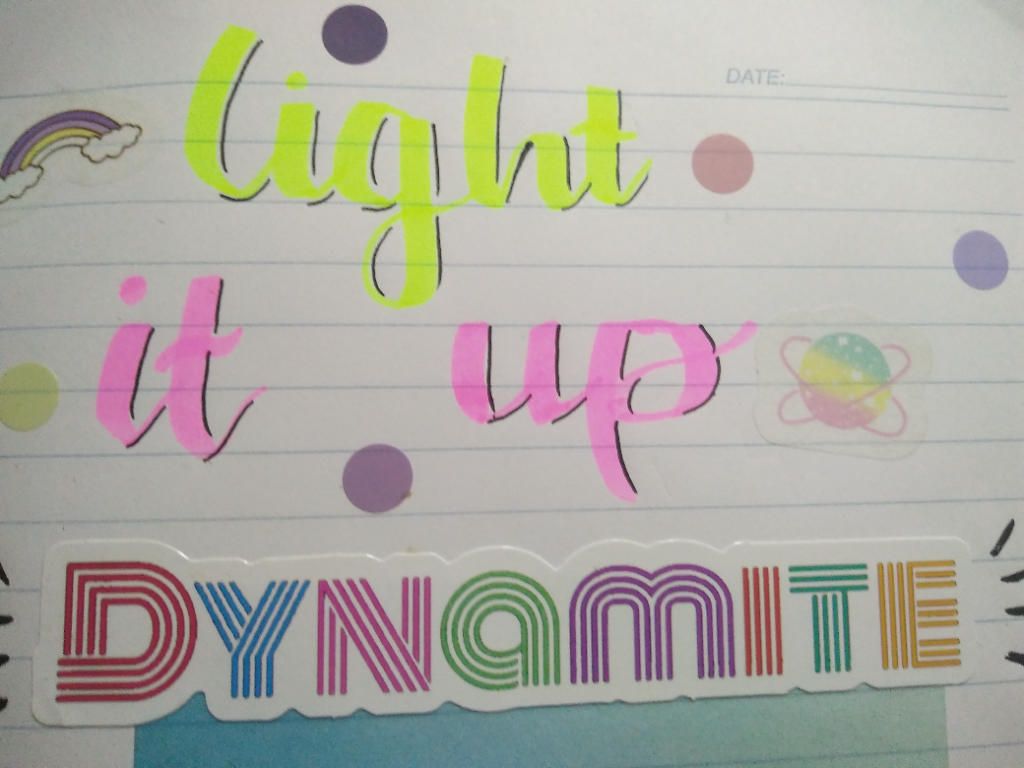 DATE:
light
it up
DYNAMITE